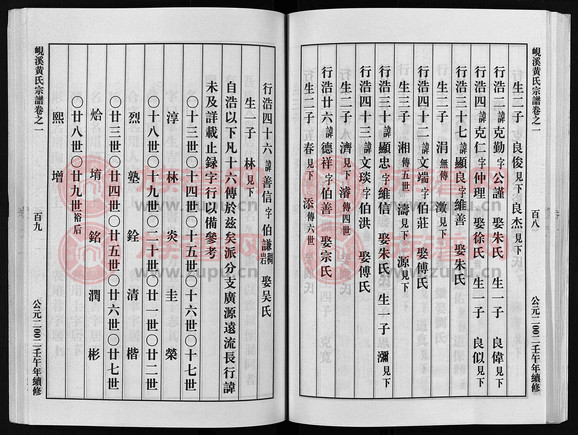 峴溪黃氏宗譜卷之一
百八
公元二〇〇二壬午年續修
生二子 良俊見下 良杰見下
行浩二諱克勤字公謹 娶朱氏 生一子 良偉見下
行浩四諱克仁字仲理 娶徐氏 生一子 良似見下
行浩三十七諱顯良字維善 娶朱氏
生二子 涓無傳 澂見下
行浩四十二諱文端字伯莊 娶傅氏
生三子 湘傳五世 濤見下 源見下
行浩三十諱顯忠字維信 娶朱氏 生一子 思瀰見下
行浩四十三諱文琰字伯洪 娶傅氏
生二子 濟見下 濬傳四世
行浩廿六諱德祥字伯善 娶宗氏
生二子 春見下 添傳六世
行浩四十六諱善信字伯謙 娶吴氏
生一子 林見下
自浩以下凡十六傳於兹矣派分支廣源遠流長行諱
未及詳載止録字行以備參考
〇十三世〇十四世〇十五世〇十六世〇十七世
字 淳 林 炎 圭 榮
〇十八世〇十九世〇二十世〇廿一世〇廿二世
烈 塾 銓 清 楷
〇廿三世〇廿四世〇廿五世〇廿六世〇廿七世
烚 堉 銘 潤 彬
〇廿八世〇廿九世裕后
熙 增
峴溪黃氏宗譜卷之一
百九
公元二〇〇二壬午年續修